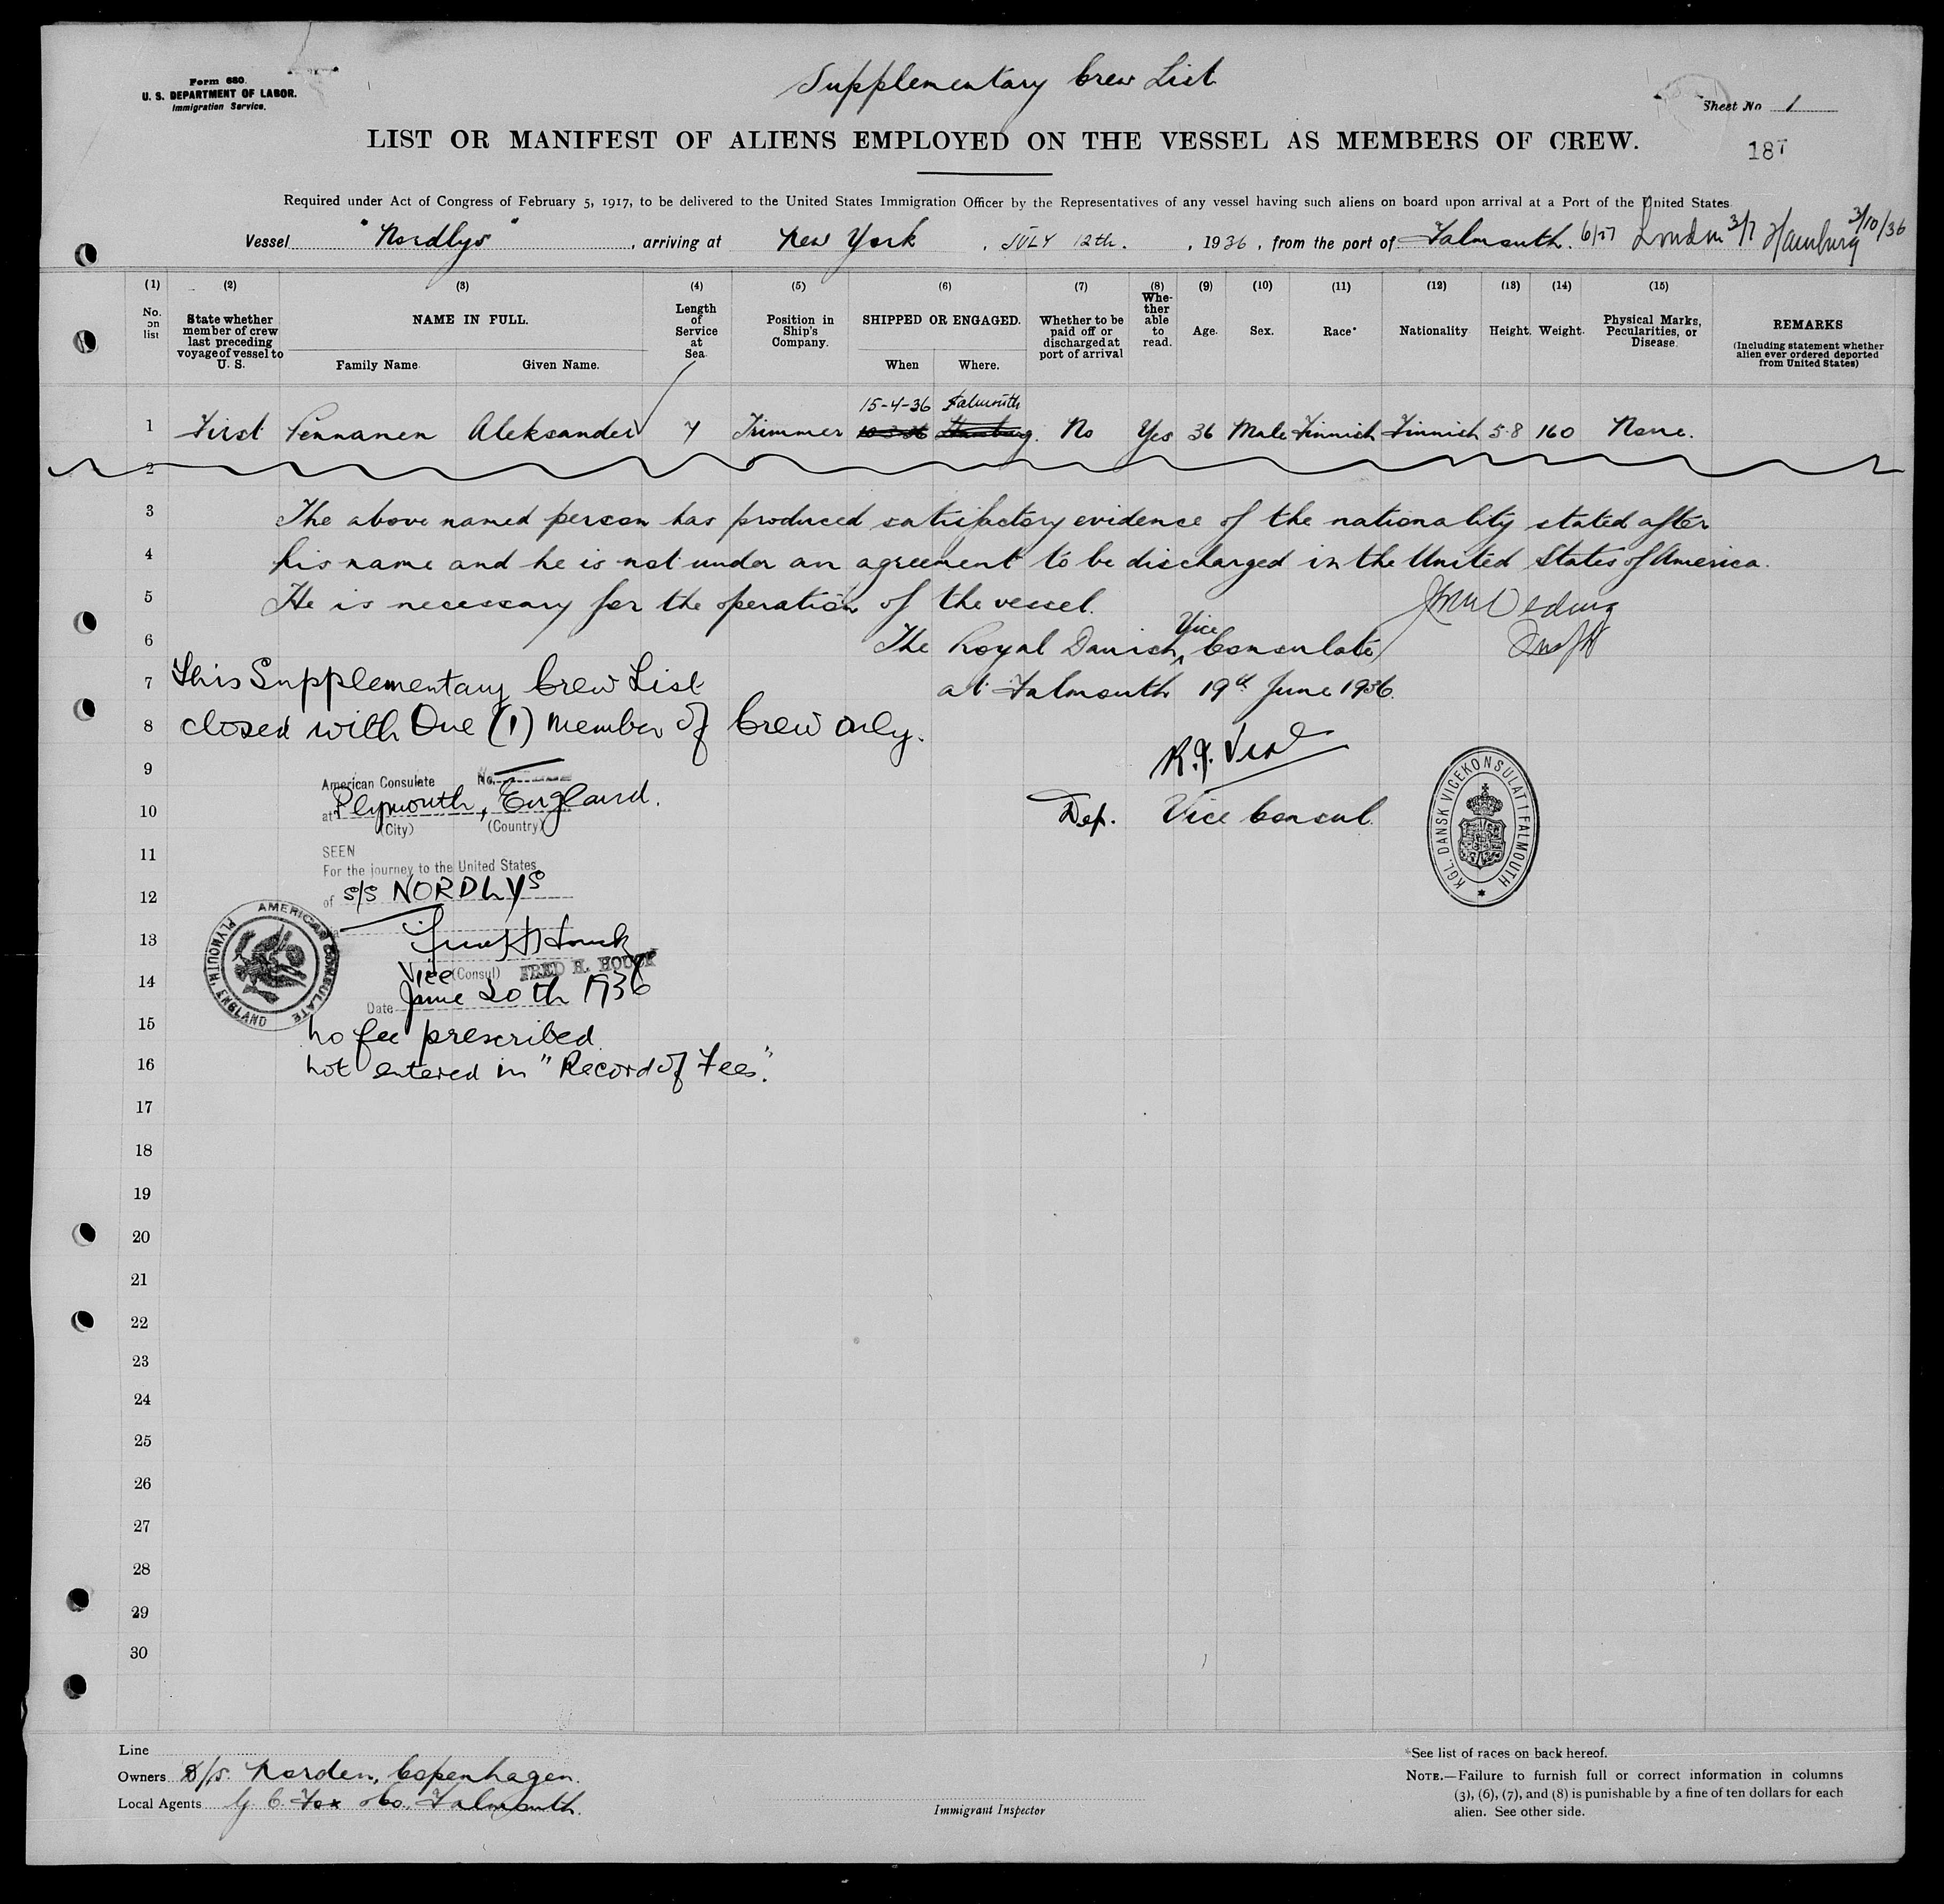 Form 680.
U. S. DEPARTMENT OF LABOR.
Immigration Service.
Supplementary Crew List
Sheet No 1
LIST OR MANIFEST OF ALIENS EMPLOYED ON THE VESSEL AS MEMBERS OF CREW.
187
Required under Act of Congress of February 5, 1917, to be delivered to the United States Immigration Officer by the Representatives of any vessel having such aliens on board upon arrival at a Port of the United States
Vessel "Nordlys", arriving at New York, JULY 12th., 1936, from the port of Falmouth. London Hamburg 3/10/36
(1) (2) (3) (4) (5) (6) (7) (8) (9) (10) (11) (12) (13) (14) (15)
No. on list
State whether member of crew last preceding voyage of vessel to U. S.
NAME IN FULL.
Family Name
Given Name.
Length of Service at Sea
Position in Ship's Company.
SHIPPED OR ENGAGED.
When
Where.
Whether to be paid off or discharged at port of arrival
Whe-ther able to read.
Age.
Sex.
Race*
Nationality
Height.
Weight.
Physical Marks, Pecularities, or Disease.
REMARKS
(Including statement whether alien ever ordered deported from United States)
15-4-36 Falmouth
1 First Pennanen Aleksander 7 Trimmer 10-3-36 Hamburg. No Yes 36 Male Finnish Finnish 5-8 160 None.
2
3 The above named person has produced satisfactory evidence of the nationality stated after
4 his name and he is not under an agreement to be discharged in the United States of America.
5 He is necessary for the operation of the vessel.
6 The Royal Danish Vice Consulate
7 This Supplementary Crew List at Falmouth 19th June 1936.
8 closed with One (1) member of Crew only.
9 American Consulate No.
10 at Plymouth, England.
(City) (Country)
Dep. Vice Consul.
KGL. DANSK VICEKONSULAT I FALMOUTH
11 SEEN
For the journey to the United States
12 of S/S NORDLYS
AMERICAN CONSULATE PLYMOUTH, ENGLAND
13
14 Vice (Consul) FRED H. HOUCK
Date June 20th 1936
15 No fee prescribed.
16 Not entered in "Record of Fees".
17
18
19
20
21
22
23
24
25
26
27
28
29
30
Line
Owners D/S. Norden, Copenhagen.
Local Agents G. C. Fox & Co. Falmouth.
Immigrant Inspector
*See list of races on back hereof.
NOTE.—Failure to furnish full or correct information in columns
(3), (6), (7), and (8) is punishable by a fine of ten dollars for each
alien. See other side.